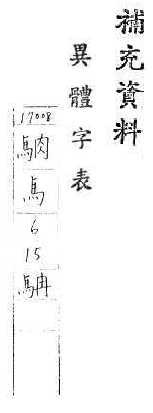 補充資料
異體字表
17008
馬
6
15